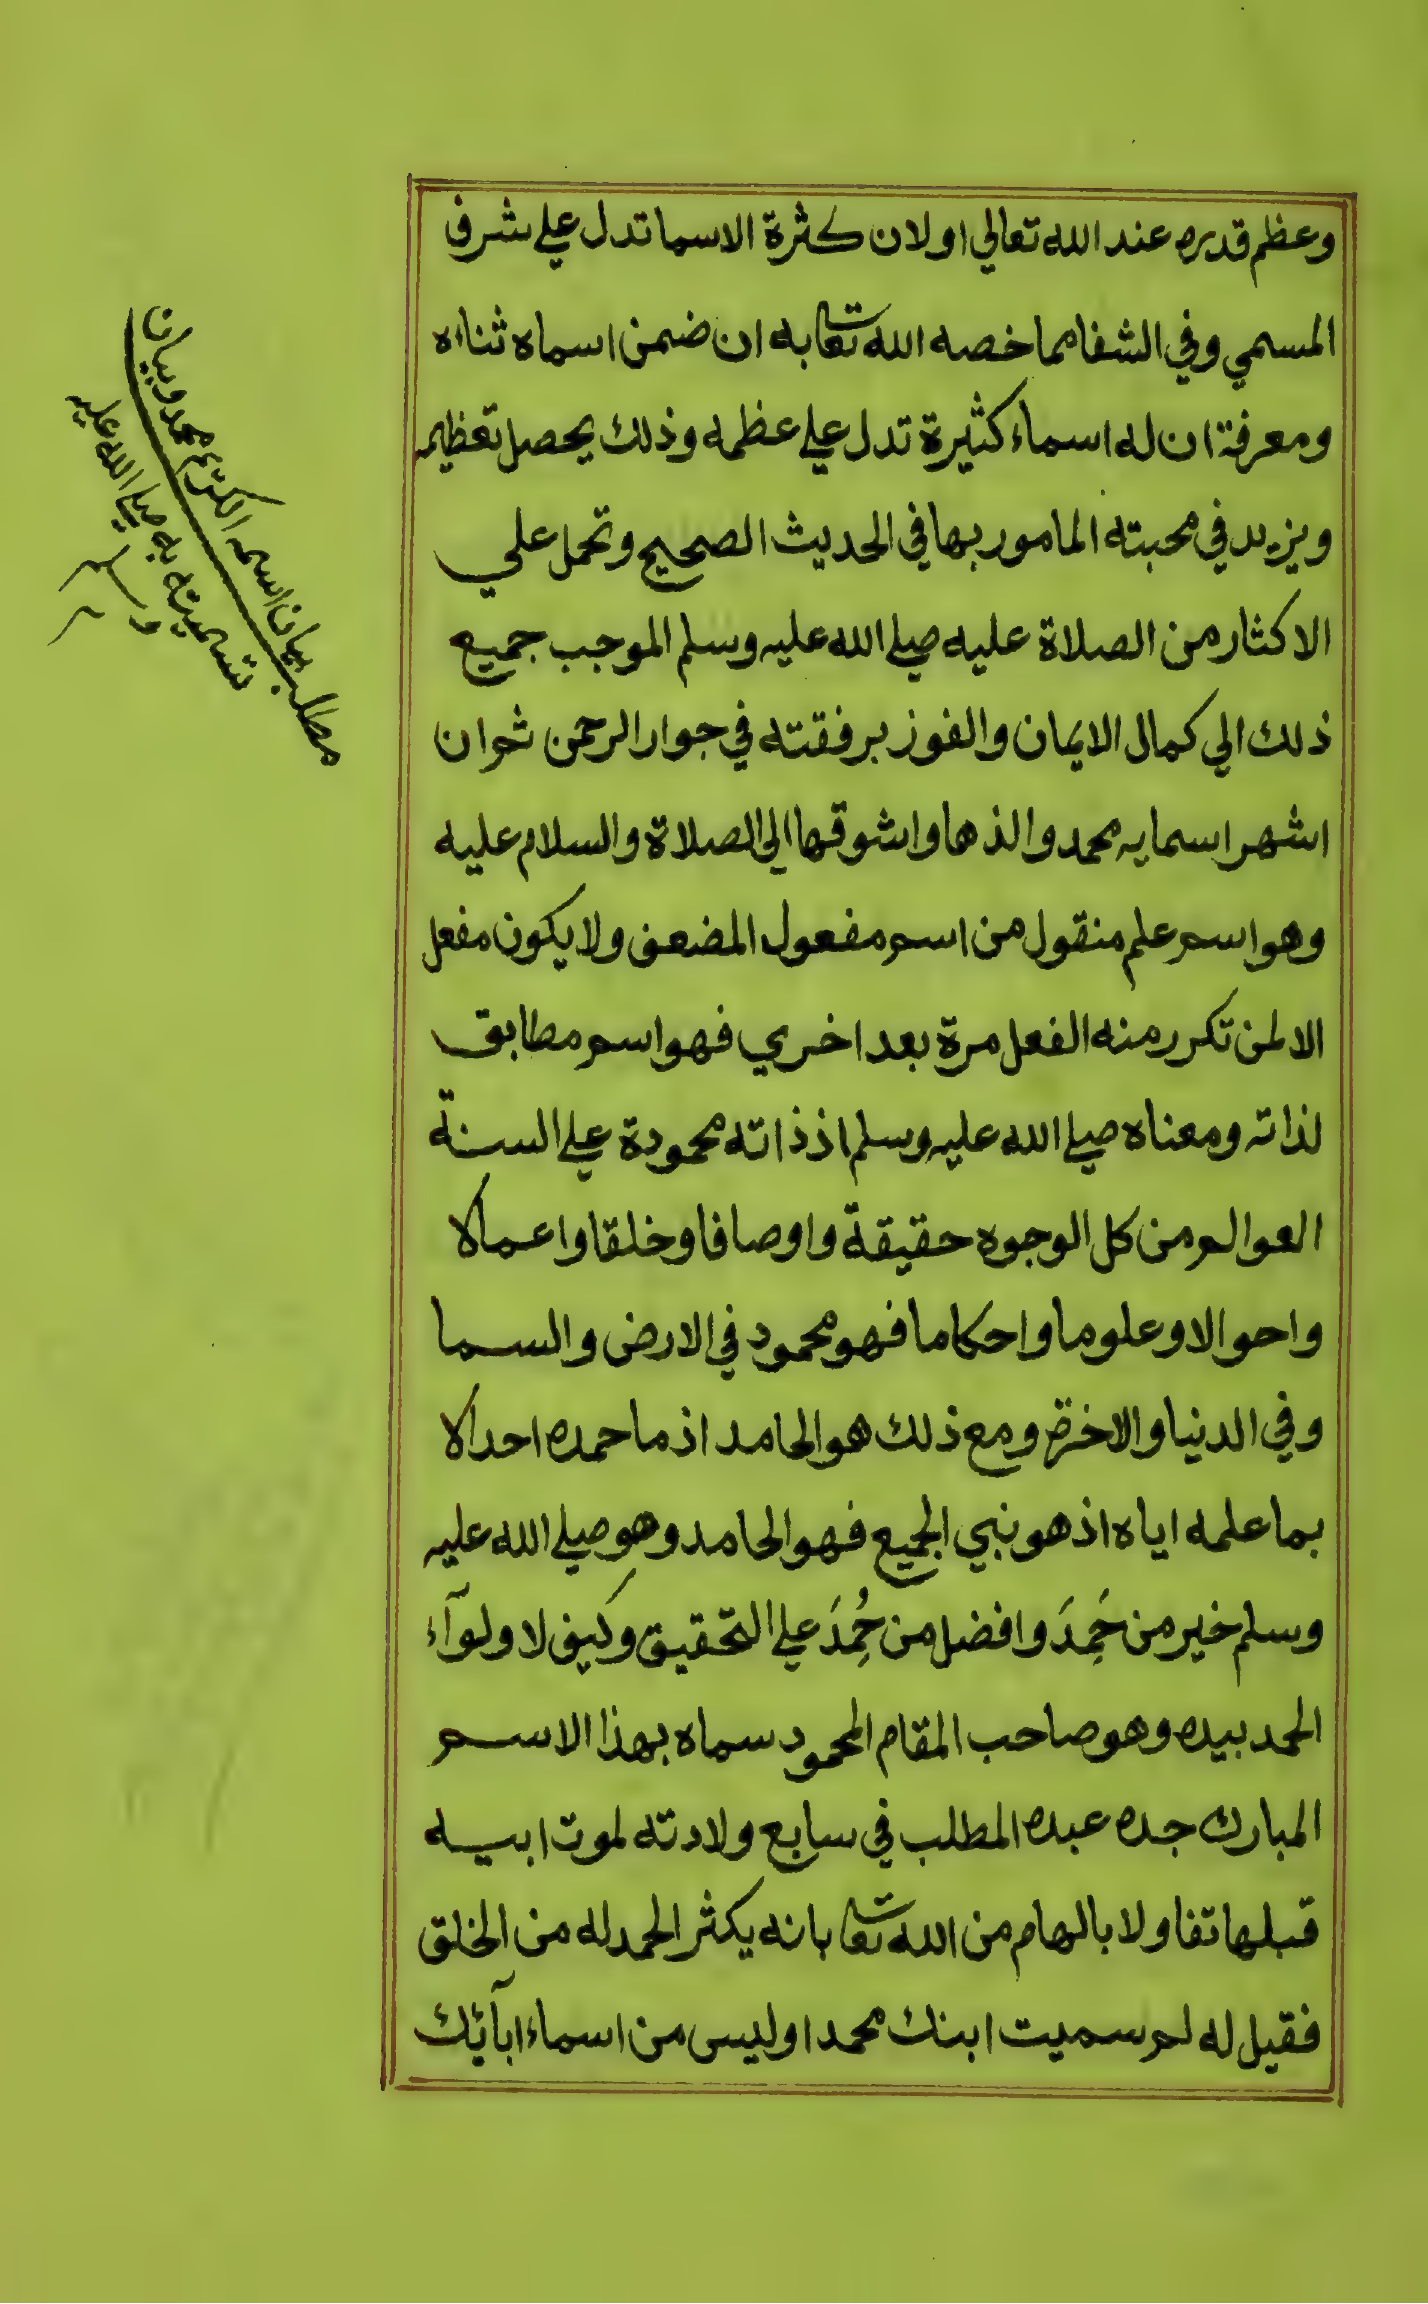 وعظم قدره عند الله تعالي او لان كثرة الاسما تدل علي شرف
المسمي وفي الشفا مما خصه الله تعا به ان ضمن اسماه ثناءه
ومعرفة ان له اسماء كثيرة تدل علي عظمه وذلك يحصل تعظيمه
ويزيد في محبته المامور بها في الحديث الصحيح وتحمل علي
الاكثار من الصلاة عليه صلي الله عليه وسلم الموجب جميع
ذلك الي كمال الايمان والفوز برفقته في جوار الرحمن ثم ان
اشهر اسمايه محمد والذها واشوقها الي الصلاة والسلام عليه
وهو اسم علم منقول من اسم مفعول المضعف ولا يكون مفعل
الا لمن تكرر منه الفعل مرة بعد اخري فهو اسم مطابق
لذاته ومعناه صلي الله عليه وسلم اذ ذاته محمودة علي السنة
العوالم من كل الوجوه حقيقة واوصافا وخلقا واعمالا
واحوالا وعلوما واحكاما فهو محمود في الارض والسما
وفي الدنيا والاخرة ومع ذلك هو الحامد اذ ما حمده احد الا
بما علمه اياه اذ هو نبي الجميع فهو الحامد وهو صلي الله عليه
وسلم خير من حَمِدَ وافضل من حُمِدَ علي التحقيق وكيف لا ولوآء
الحمد بيده وهو صاحب المقام المحمود سماه بهذا الاسم
المبارك جده عبده المطلب في سابع ولادته لموت ابيه
قبلها تفاولا بالهام من الله تعا بانه يكثر الحمد له من الخلق
فقيل له لم سميت ابنك محمدا وليس من اسماء ابآئك
مطلب بيان اسمه الكريم محمد وبيان
تسميته به صلي الله عليه
وسلم